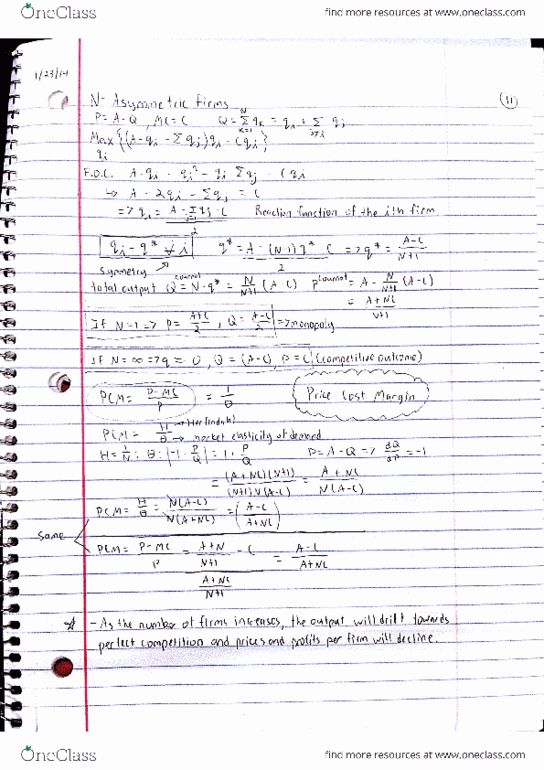 OneClass find more resources at www.oneclass.com
1/23/14
N- Asymetric Firms (11)
P= A-Q , MC= C Q= Σ qₖ = qᵢ + Σ qⱼ
Max {(A-qᵢ - Σqⱼ)qᵢ - Cqᵢ}
qᵢ
F.O.C. A·qᵢ - qᵢ² - qᵢ Σqⱼ - Cqᵢ
↳ A - 2qᵢ - Σqⱼ = C
=> qᵢ = (A - Σqⱼ - C)/2 Reaction function of the ith firm
qᵢ = q* ∀ i q* = (A - (N-1)q* - C)/2 => q* = (A-C)/(N+1)
Symmetry
total output Q^cournot = N·q* = N/(N+1) (A-C) P^cournot = A - N/(N+1) (A-C)
= (A+NC)/(N+1)
If N=1 => P= (A+C)/2 , Q= (A-C)/2 => monopoly
if N=∞ => q= 0, Q=(A-C), P=C (competitive outcome)
PCM= (P-MC)/P = 1/θ Price Cost Margin
PCM= H/θ → Herfindahl
→ market elasticity of demand
H= 1/N : θ: |-1 · P/Q| = 1 · P/Q P= A-Q => dQ/dP = -1
= (A+NC)(N+1)/(N+1)N(A-C) = (A+NC)/N(A-C)
PCM= H/θ = N(A-C)/N(A+NC) = ((A-C)/(A+NC))
Same
PCM= (P-MC)/P = ((A+N)/(N+1) - C)/((A+NC)/(N+1)) = (A-C)/(A+NC)
- As the number of firms increases, the output will drift towards
perfect competition and prices and profits per firm will decline.
OneClass find more resources at www.oneclass.com